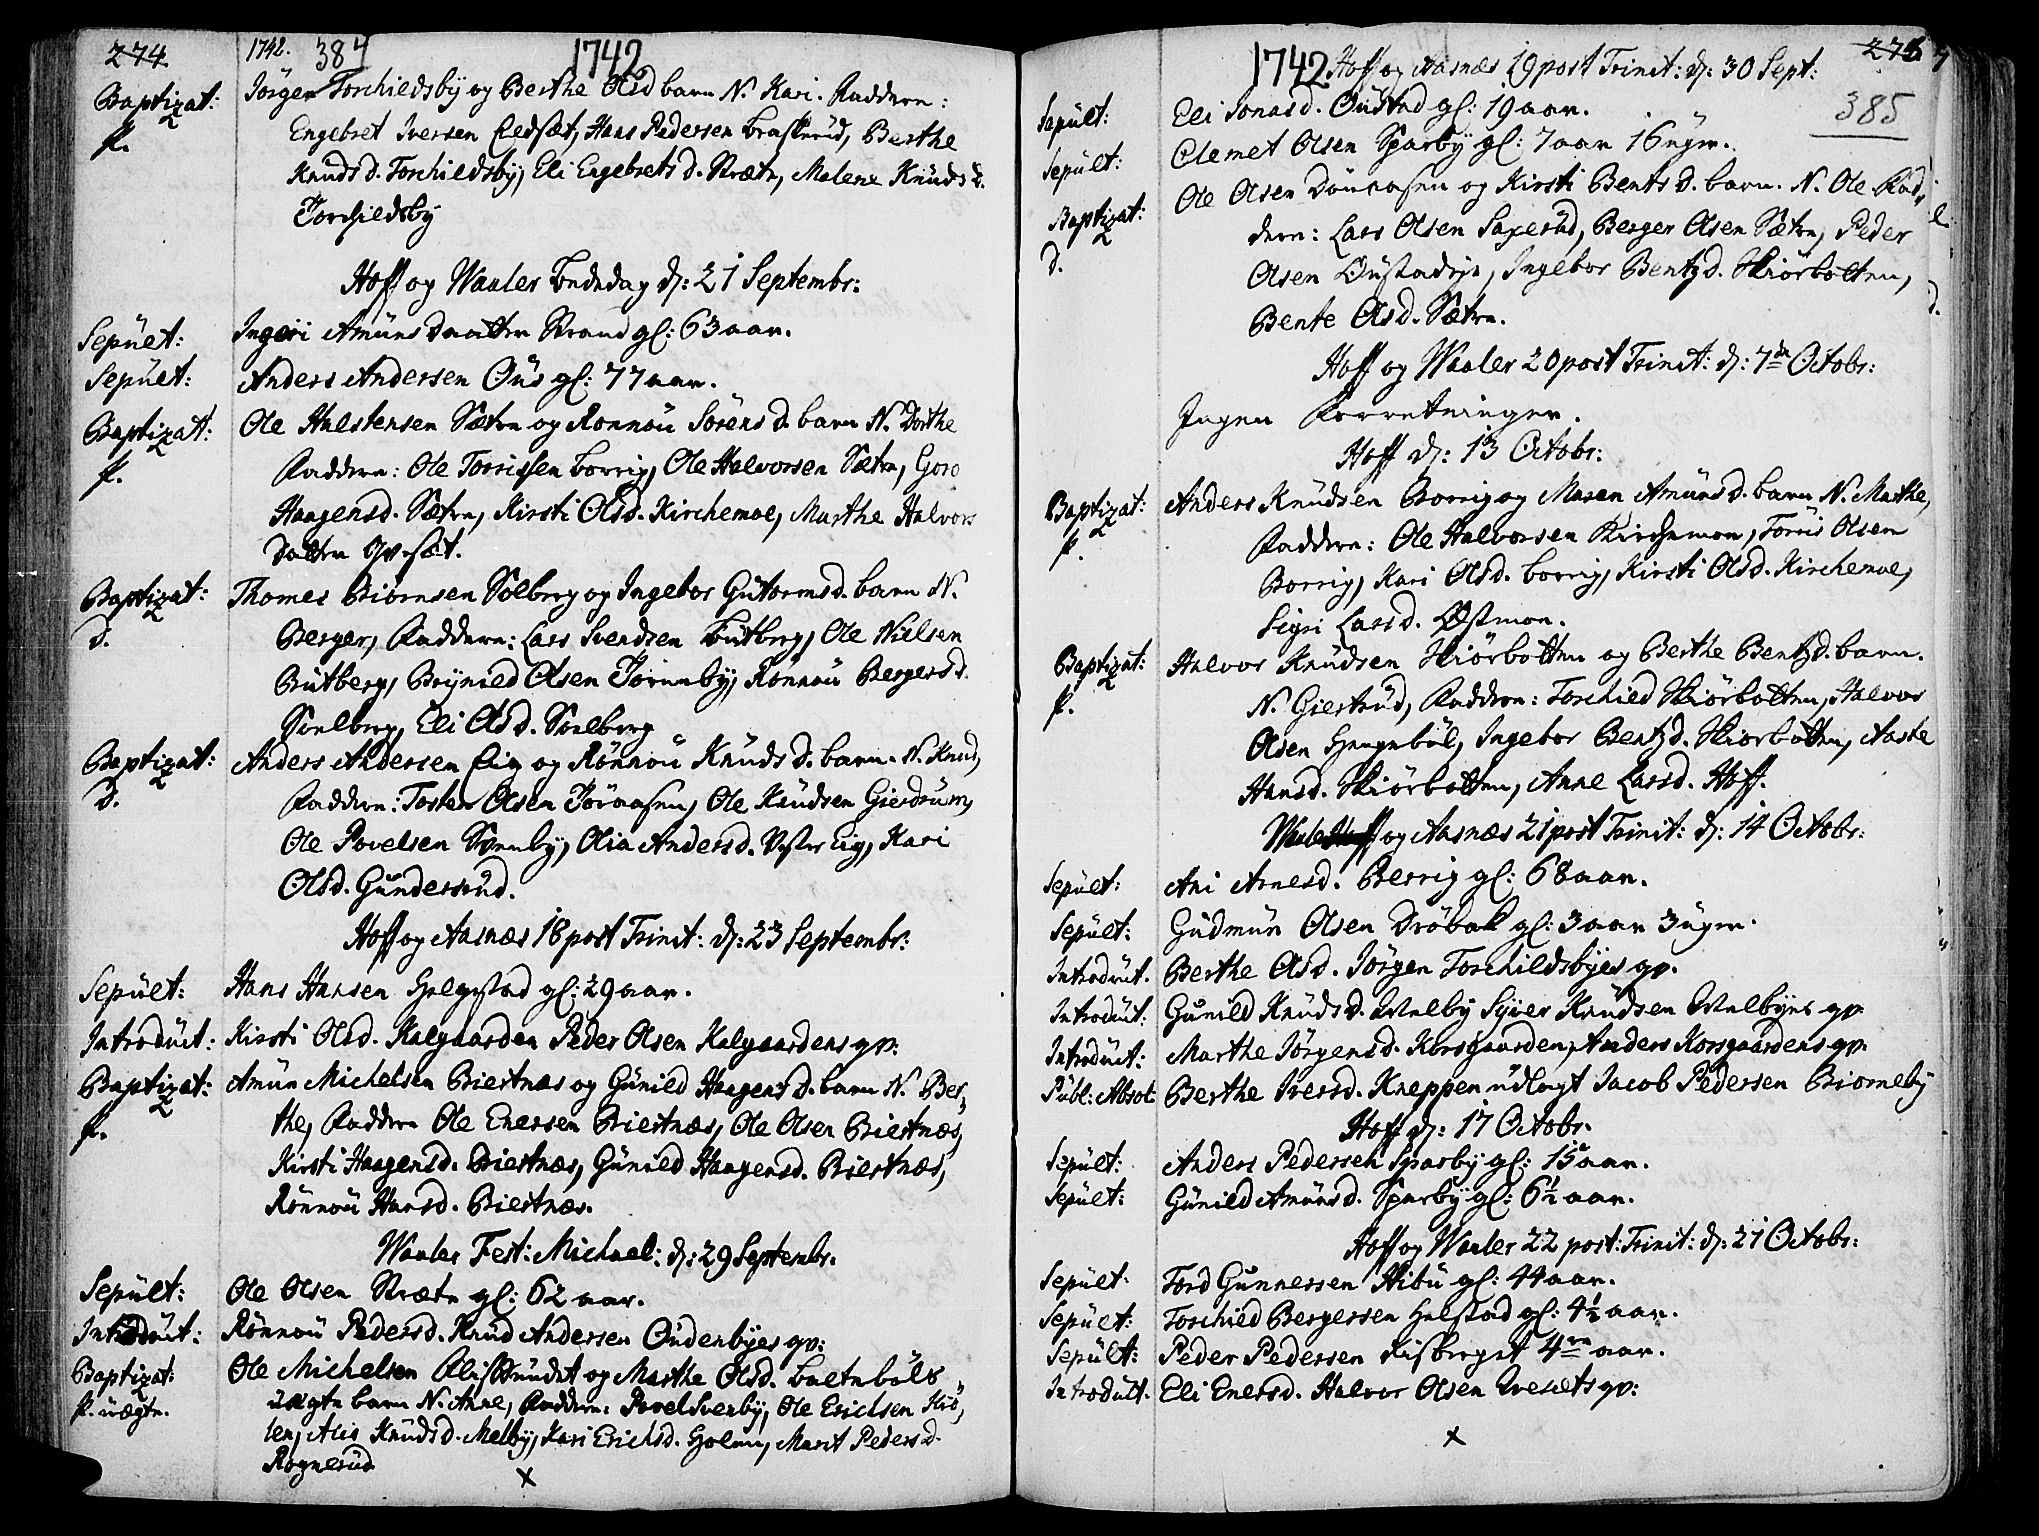 274. 1742. 384 1742
Baptizat: Jörgen Torchildsbÿ og Berthe Olsd barn N. Kari. Faddere:
f. Engebret Iversen Eedsæt, Hans Pedersen Braskerud, Berthe
Knudsd. Torchildsbÿ, Eli Engebretsd. Stræte, Malene Knudsd.
Torchildsbÿ
Hoff og Waaler Bededag d: 21 Septembr:
Sepült: Ingeri Amünsdaatter Strand gl: 63 aar.
Sepült: Anders Andersen Oüs gl: 77 aar.
Baptizat: Ole Halstensen Sætre og Ronnoü Sörensd. barn N. Dorthe
f. Faddere: Ole Torrissen Borrig, Ole Halvorsen Sætre, Goro
Haagensd. Sætre, Kirsti Olsd. Kirchemoe, Marthe Halvors
Datter
Baptizat: Thomes Biörnsen Solberg og Ingebor Gütormsd. barn N.
D. Berger, Faddere: Lars Svendsen Bütberg, Ole Nielsen
Bütberg, Brÿnild Olsen Törrnbÿ, Ronnoü Bergersd.
Soelberg, Eli Olsd. Soelberg
Baptizat: Anders Andersen Eig og Rönnoü Knüdsd. barn N. Knud,
D. Faddere: Tosten Olsen Töraasen, Ole Knüdsen Gierdrum,
Ole Povelsen Svenbÿ, Olia Andersd. Vester Eig, Kari
Olsd. Gündersrud.
Hoff og Aasnæs 18 post Trinit: d: 23 Septembr:
Sepült: Hans Hansen Helgestad gl: 29 aar.
Introdüct: Kirsti Olsd. Kalgaarden Peder Olsen Kalgaardens qv:
Baptizat: Amün Michelsen Briestnæs og Günild Haagensd. barn N. Ber,
f. the, Faddere Ole Enersen Briestnæs, Ole Olsen Briestnæs,
Kirsti Haagensd. Briestnæs, Günild Haagensd. Briestnæs,
Rönnoü Hansd. Briestnæs.
Waaler Fest: Michael: d: 29 Septembr.
Sepült: Ole Olsen Stræte gl: 62 aar.
Introdüct: Rönnoü Pedersd. Knüd Andersen Oüdenbÿes qv:
Baptizat: Ole Michelsen og Marthe Olsd. Balteböls
f. uægte. üægte barn N. Anne, Faddere: Povel Svenbÿ, Ole Erichsen Kiö,
len, Alis Knüdsd. Melbÿ, Kari Erichsd. Holen, Marit Pedersd.
Rognerüd
x
1742 Hoff og Aasnæs 19 post Trinit: d: 30 Sept: 275
385
Sepült: Eli Jonasd. Oüstad gl: 19 aar.
Sepült: Clemet Olsen Sparbÿ gl: 7 aar 16 uger.
Baptizat: Ole Olsen Dönnasen og Kirsti Bentsd. barn. N. Ole Fad,
D. dere: Lars Olsen Saxerüd, Berger Olsen Sætre, Peder
Olsen Oüstadeje, Ingebor Bentzd. Skiörbotten,
Bente Olsd. Sætre.
Hoff og Waaler 20 post Trinit: d: 7de Octobr:
Ingen Forretninger.
Hoff d: 13 Octobr:
Baptizat: Anders Knüdsen Borrig og Maren Amünsd. barn N. Marthe,
f. Faddere: Ole Halvorsen Kirchemoe, Törris Olsen
Borrig, Kari Olsd. Borrig, Kirsti Olsd. Kirchemoe,
Sigri Larsd. Østmoe.
Baptizat: Halvor Knüdsen Skiörbotten og Berthe Bentzd. barn.
f. N. Giertrüd, Faddere: Torchild Skiörbotten, Halvor
Olsen Haugeböl, Ingebor Bentzd. Skiörbotten, Aaste
Hansd. Skiörbotten, Anne Larsd. Hoff.
og Aasnæs 21 post Trinit: d: 14 Octobr:
Sepült: Ani Arnesd. Berrig gl: 68 aar.
Sepült: Güdmün Olsen Dröbak gl: 3 aar 3 üger.
Introdüct. Berthe Olsd. Jörgen Torchildsbÿes qv.
Introdüct: Günild Knüdsd. Walbÿ Sÿver Knüdsen Walbÿes qv
Introdüct: Marthe Jörgensd. Korsgaarden, Anders Korsgaardens qv.
Pübl: Absol: Berthe Iversd. Kneppen üdlagt Jacob Pedersen Biörnebÿ
Hoff d: 17 Octobr.
Sepült: Anders Pedersen Sparbÿ gl: 15 aar.
Sepült: Günild Amünsd. Sparbÿ gl: 6½ aar.
Hoff og Waaler 22 post: Trinit: d: 21 Octobr:
Sepült: Tord Gunnersen Skibü gl: 44 aar.
Sepült: Torchild Bergersen Halstad gl: 4½ aar.
Sepült: Peder Pedersen Risberget 4 aar.
Introdüct. Eli Enersd. Halvor Olsen qv:
x